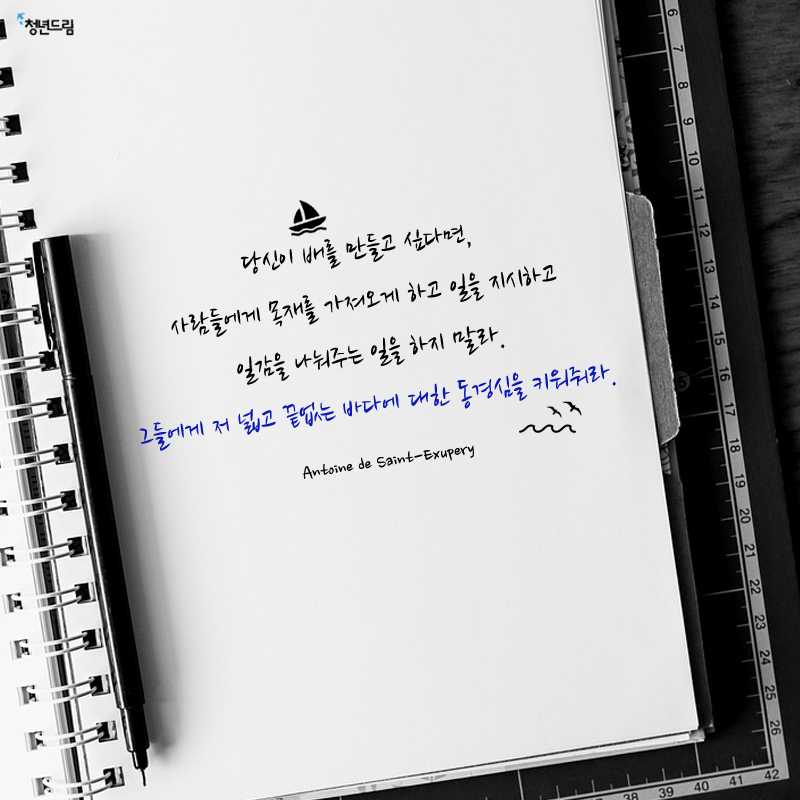 청년드림
당신이 배를 만들고 싶다면,
사람들에게 목재를 가져오게 하고 일을 지시하고
일감을 나눠주는 일을 하지 말라.
그들에게 저 넓고 끝없는 바다에 대한 동경심을 키워줘라.
Antoine de Saint-Exupery
6
7
8
9
10
11
12
13
14
15
18
19
20
21
22
23
24
25
26
38
39
40
41
42